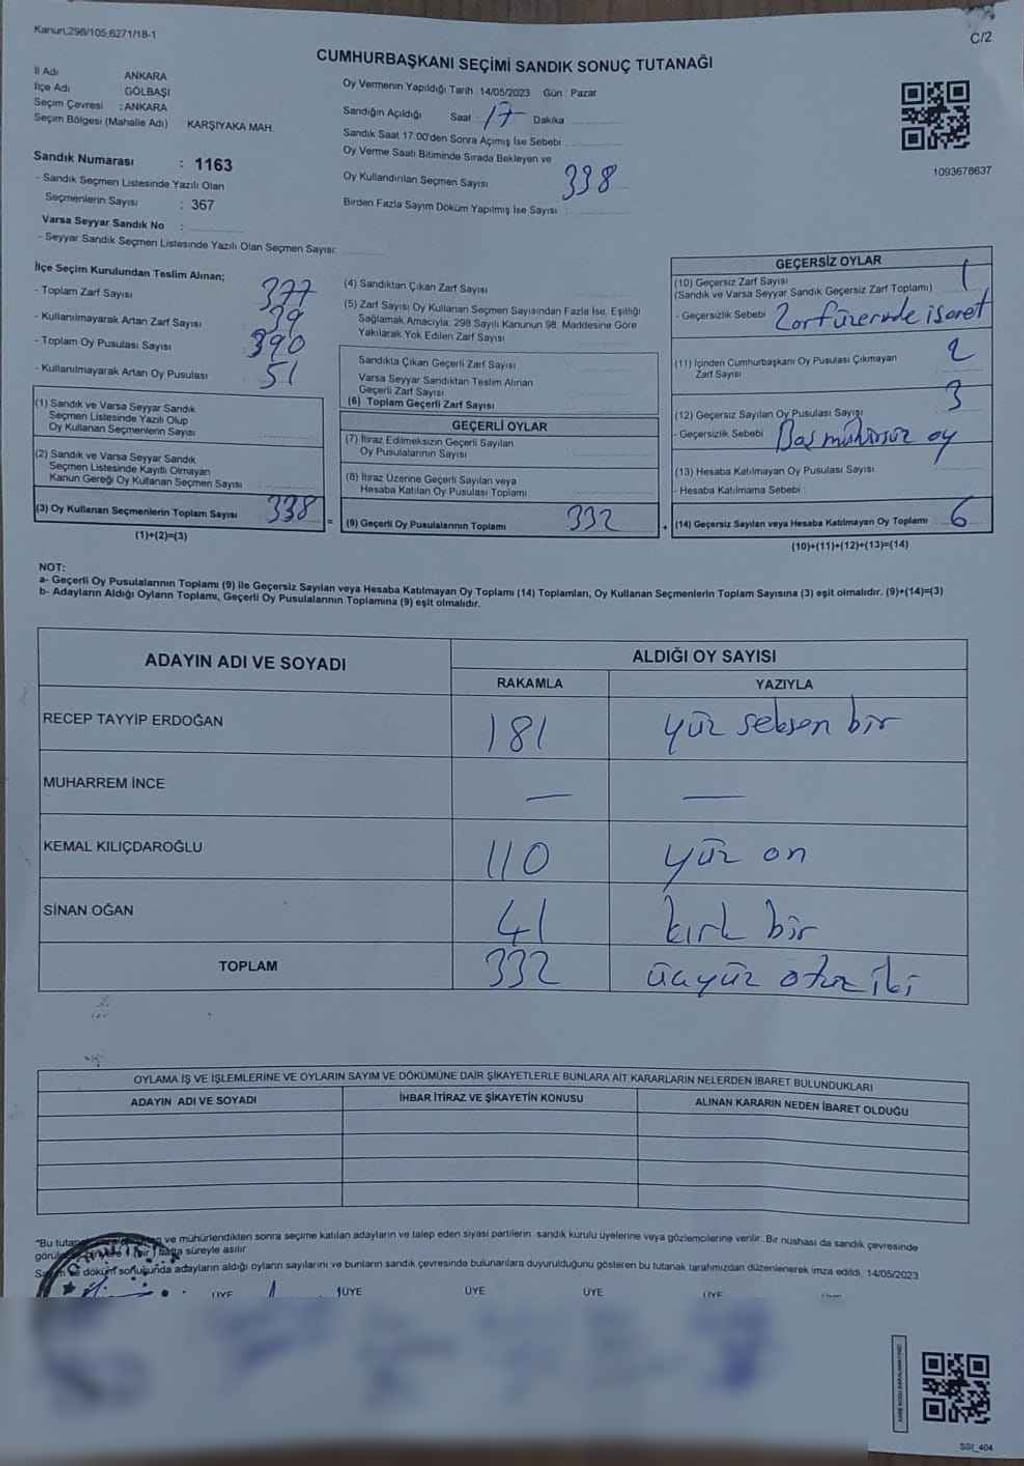 Kanun:298/105;6271/18-1
C/2
CUMHURBAŞKANI SEÇİMİ SANDIK SONUÇ TUTANAĞI
İl Adı ANKARA
İlçe Adı GÖLBAŞI
Seçim Çevresi : ANKARA
Seçim Bölgesi (Mahalle Adı) KARŞIYAKA MAH.
Sandık Numarası : 1163
- Sandık Seçmen Listesinde Yazılı Olan
Seçmenlerin Sayısı : 367
Varsa Seyyar Sandık No :
- Seyyar Sandık Seçmen Listesinde Yazılı Olan Seçmen Sayısı:
Oy Vermenin Yapıldığı Tarih: 14/05/2023 Gün : Pazar
Sandığın Açıldığı Saat 17 Dakika
Sandık Saat 17:00'den Sonra Açımış İse Sebebi
Oy Verme Saati Bitiminde Sırada Bekleyen ve
Oy Kullandırılan Seçmen Sayısı 338
Birden Fazla Sayım Döküm Yapılmış İse Sayısı :
1093678637
İlçe Seçim Kurulundan Teslim Alınan;
- Toplam Zarf Sayısı 377
- Kullanılmayarak Artan Zarf Sayısı 39
- Toplam Oy Pusulası Sayısı 390
- Kullanılmayarak Artan Oy Pusulası 51
(1) Sandık ve Varsa Seyyar Sandık
Seçmen Listesinde Yazılı Olup
Oy Kullanan Seçmenlerin Sayısı
(2) Sandık ve Varsa Seyyar Sandık
Seçmen Listesinde Kayıtlı Olmayan
Kanun Gereği Oy Kullanan Seçmen Sayısı
(3) Oy Kullanan Seçmenlerin Toplam Sayısı 338
(1)+(2)=(3)
(4) Sandıktan Çıkan Zarf Sayısı
(5) Zarf Sayısı Oy Kullanan Seçmen Sayısından Fazla İse, Eşitliği
Sağlamak Amacıyla, 298 Sayılı Kanunun 98. Maddesine Göre
Yakılarak Yok Edilen Zarf Sayısı
Sandıkta Çıkan Geçerli Zarf Sayısı
Varsa Seyyar Sandıktan Teslim Alınan
Geçerli Zarf Sayısı
(6) Toplam Geçerli Zarf Sayısı
=
GEÇERLİ OYLAR
(7) İtiraz Edilmeksizin Geçerli Sayılan
Oy Pusulalarının Sayısı
(8) İtiraz Üzerine Geçerli Sayılan veya
Hesaba Katılan Oy Pusulası Toplamı
(9) Geçerli Oy Pusulalarının Toplamı 332
+
GEÇERSİZ OYLAR
(10) Geçersiz Zarf Sayısı 1
(Sandık ve Varsa Seyyar Sandık Geçersiz Zarf Toplamı)
- Geçersizlik Sebebi Zarf üzerinde işaret
(11) İçinden Cumhurbaşkanı Oy Pusulası Çıkmayan 2
Zarf Sayısı
(12) Geçersiz Sayılan Oy Pusulası Sayısı 3
- Geçersizlik Sebebi Boş mühürsüz oy
(13) Hesaba Katılmayan Oy Pusulası Sayısı
- Hesaba Katılmama Sebebi
(14) Geçersiz Sayılan veya Hesaba Katılmayan Oy Toplamı 6
(10)+(11)+(12)+(13)=(14)
NOT:
a- Geçerli Oy Pusulalarının Toplamı (9) ile Geçersiz Sayılan veya Hesaba Katılmayan Oy Toplamı (14) Toplamları, Oy Kullanan Seçmenlerin Toplam Sayısına (3) eşit olmalıdır. (9)+(14)=(3)
b- Adayların Aldığı Oyların Toplamı, Geçerli Oy Pusulalarının Toplamına (9) eşit olmalıdır.
ADAYIN ADI VE SOYADI ALDIĞI OY SAYISI
RAKAMLA YAZIYLA
RECEP TAYYİP ERDOĞAN 181 yüz seksen bir
MUHARREM İNCE — —
KEMAL KILIÇDAROĞLU 110 yüz on
SİNAN OĞAN 41 kırk bir
TOPLAM 332 üçyüz otuz iki
OYLAMA İŞ VE İŞLEMLERİNE VE OYLARIN SAYIM VE DÖKÜMÜNE DAİR ŞİKAYETLERLE BUNLARA AİT KARARLARIN NELERDEN İBARET BULUNDUKLARI
ADAYIN ADI VE SOYADI İHBAR İTİRAZ VE ŞİKAYETİN KONUSU ALINAN KARARIN NEDEN İBARET OLDUĞU
"Bu ve mühürlendikten sonra seçime katılan adayların ve talep eden siyasi partilerin sandık kurulu üyelerine veya gözlemcilerine verilir. Bir nüshası da sandık çevresinde
süreyle asılır.
döküm sonucunda adayların aldığı oyların sayılarını ve bunların sandık çevresinde bulunanlara duyurulduğunu gösteren bu tutanak tarafımızdan düzenlenerek imza edildi. 14/05/2023
ÜYE ÜYE ÜYE ÜYE ÜYE
SSI_404